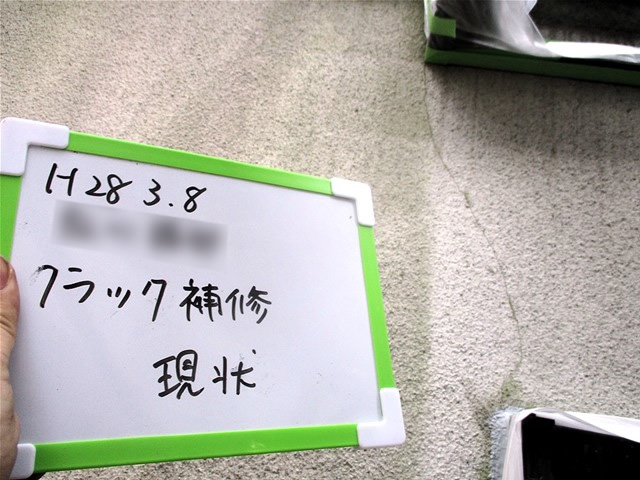 H28 3.8
クラック補修
現状